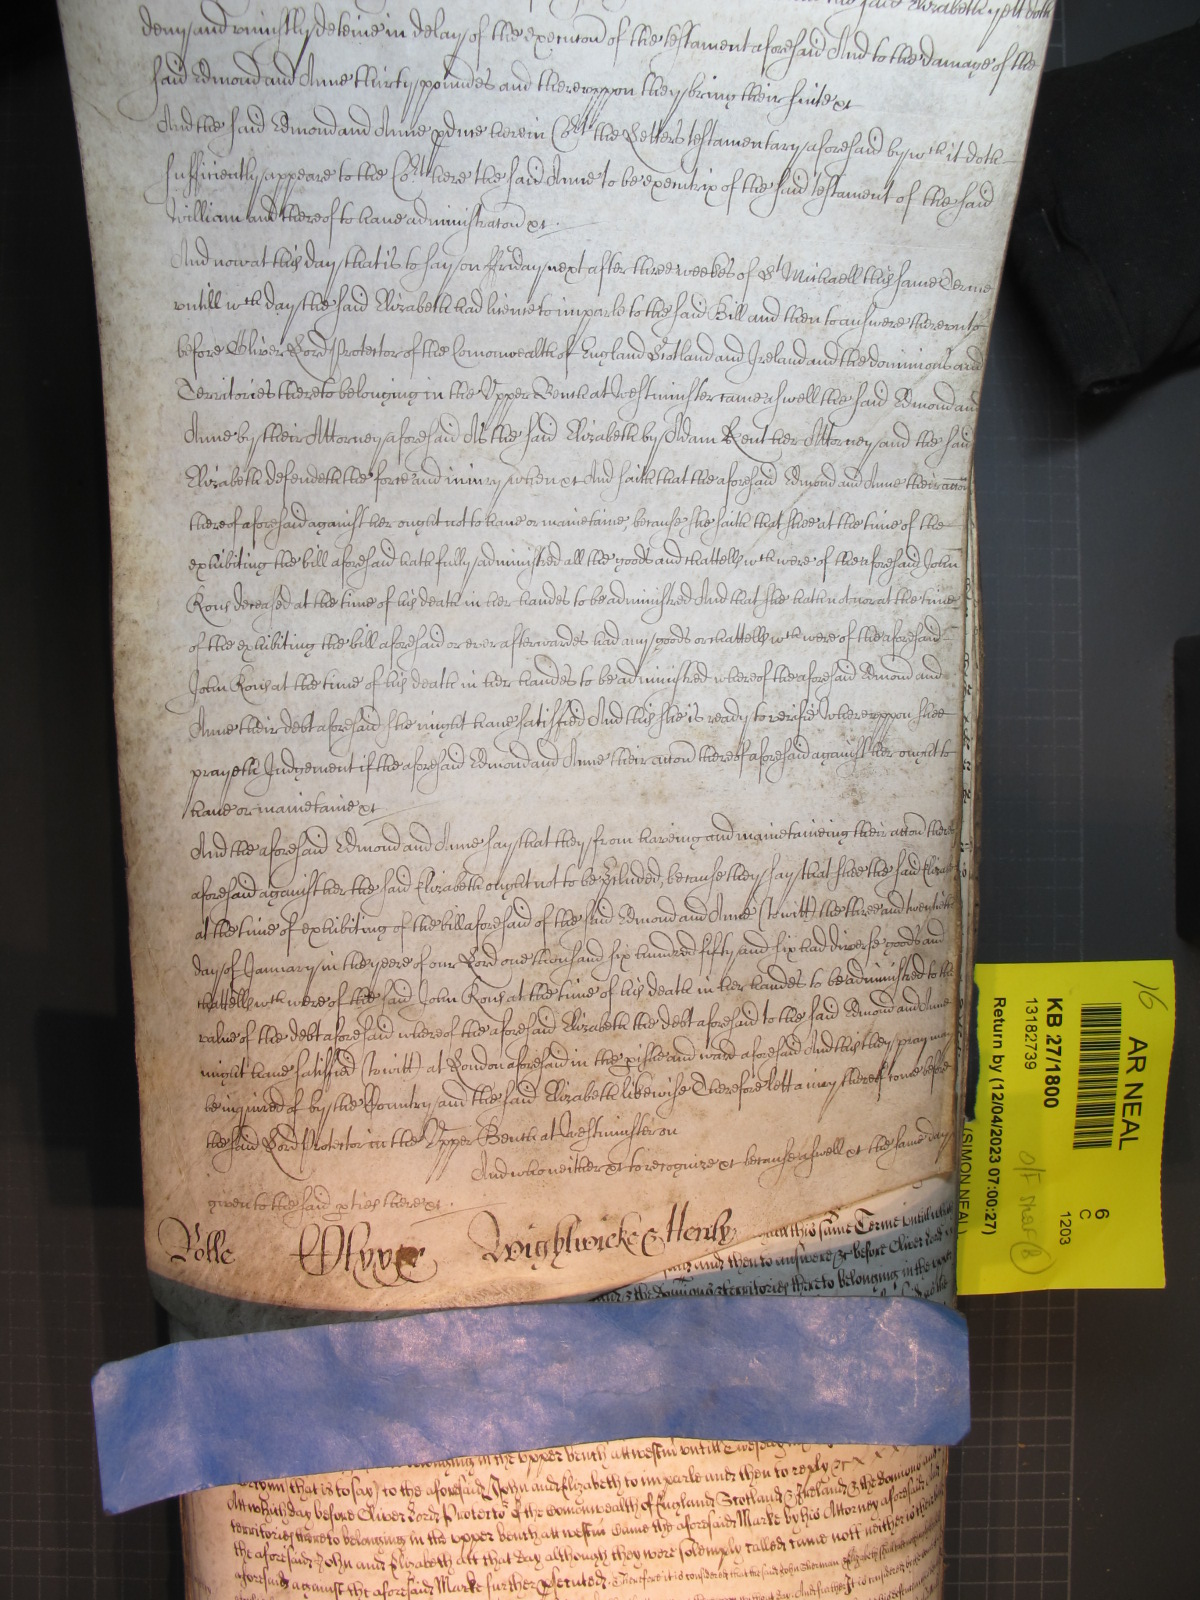 said Elizabeth yett doth
deny and uniustly deteine in delay of the execucon of the testament aforesaid And to the damage of the
said Edmond and Anne thirty poundes and thereuppon they bring their suite &c
And the said Edmond and Anne pduce herein Cort the Letters testamentary aforesaid by wch it doth
sufficiently appeare to the Cort here the said Anne to be executrix of the said testament of the said
William and thereof to have administracon &c
And now at this day that is to say on Fryday next after three weekes of St Michaell this same Terme
untill wch day the said Elizabeth had licence to imparle to the said Bill and then to answere thereunto
before Oliver Lord Protector of the Comonwealth of England Scotland and Ireland and the dominions and
Territories thereto belonging in the Upper Bench at Westminster came aswell the said Edmond and
Anne by their Attorney aforesaid As the said Elizabeth by Adam Kent her Attorney and the said
Elizabeth defendeth the force and iniury when &c And saith that the aforesaid Edmond and Anne their accon
thereof aforesaid against her ought not to have or mainetaine, because she saith that shee at the time of the
exhibiting the bill aforesaid hath fully administred all the goods and chattells wch were of the aforesaid John
Rous deceased at the time of his death in her handes to be administred And that she hath not nor at the time
of the exhibiting the bill aforesaid or ever afterwardes had any goods or chattells wch were of the aforesaid
John Rous at the time of his death in her handes to be administred whereof the aforesaid Edmond and
Anne their debt aforesaid she might have satisfied And this she is ready to verifie Whereuppon shee
prayeth Judgement if the aforesaid Edmond and Anne their accon thereof aforesaid against her ought to
have or mainetaine &c
And the aforesaid Edmond and Anne say that they from haveing and mainetaineing their accon there
aforesaid against her the said Elizabeth ought not to be Excluded, because they say that shee the said Elizabeth
at the time of exhibiting of the bill aforesaid of the said Edmond and Anne (to witt) the three and twentieth
day of January in the yeere of our Lord one thousand six hundred fifty and six had diverse goods and
chattells wch were of the said John Rous at the time of his death in her handes to be administred to the
value of the debt aforesaid whereof the aforesaid Elizabeth the debt aforesaid to the said Edmond and Anne
might have satisfied (to witt) at London aforesaid in the pishe and ward aforesaid And this they pray may
be inquired of by the Country and the said Elizabeth likewise Therefore lett a iury thereof come before
the said Lord Protector in the Upper Bench at Westminster on
And who neither &c to recognize &c because aswell &c the same day
given to the said pties there &c
Rolle Wightwicke & Henly
this same Terme untill
and then to answere &c before Oliver Lord
& the dominions & territories thereto belonging in the
in the upper bench att westm untill
that is to say) to the aforesaid John and Elizabeth to imparle and then to reply &c
Att which day before Oliver Lord Protector of the Comonwealth of England Scotland & Ireland & the dominions and
territories thereto belonging in the upper bench att westm Came the aforesaid Marke by his Attorney aforesaid And
the aforesaid John and Elizabeth att that day although they were solemply called came nott neither is their
aforesaid against the aforesaid Marke further psecuted. Therefore it is considered that the said John
AR NEAL
16
6
C
1203
KB 27/1800
13182739
Return by (12/04/2023 07:00:27)
(SIMON NEAL)